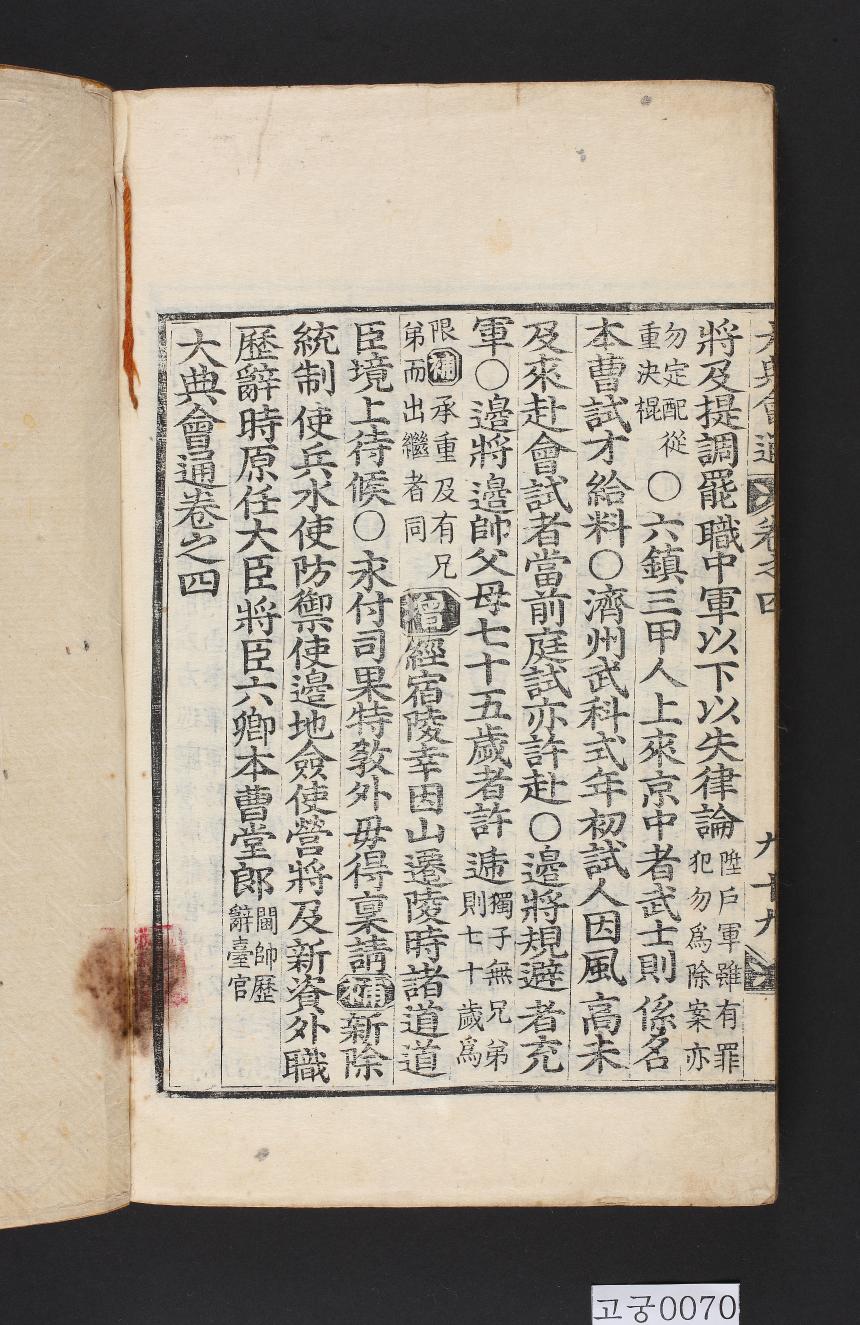 大典會通 卷之四 九十九
將及提調罷職中軍以下以失律論陞戶軍雖有罪犯勿爲除案亦
勿定配從重決棍○六鎭三甲人上來京中者武士則係名
本曹試才給料○濟州武科式年初試人因風高未
及來赴會試者當前庭試亦許赴○邊將規避者充
軍○邊將邊帥父母七十五歲者許遞獨子無兄弟則七十歲爲
限補承重及有兄弟而出繼者同增經宿陵幸因山遷陵時諸道道
臣境上待候○永付司果特敎外毋得稟請補新除
統制使兵水使防禦使邊地僉使營將及新資外職
歷辭時原任大臣將臣六卿本曹堂郞閫帥歷辭臺官
大典會通卷之四
고궁0070